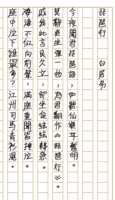 琵琶行　白居易
今夜聞君琵琶語，如聽仙樂耳暫明。
莫辭更坐彈一曲，為君翻作琵琶行。
感我此言良久立，卻坐促絃絃轉急。
淒淒不似向前聲，滿座重聞皆掩泣。
座中泣下誰最多？江州司馬青衫濕。